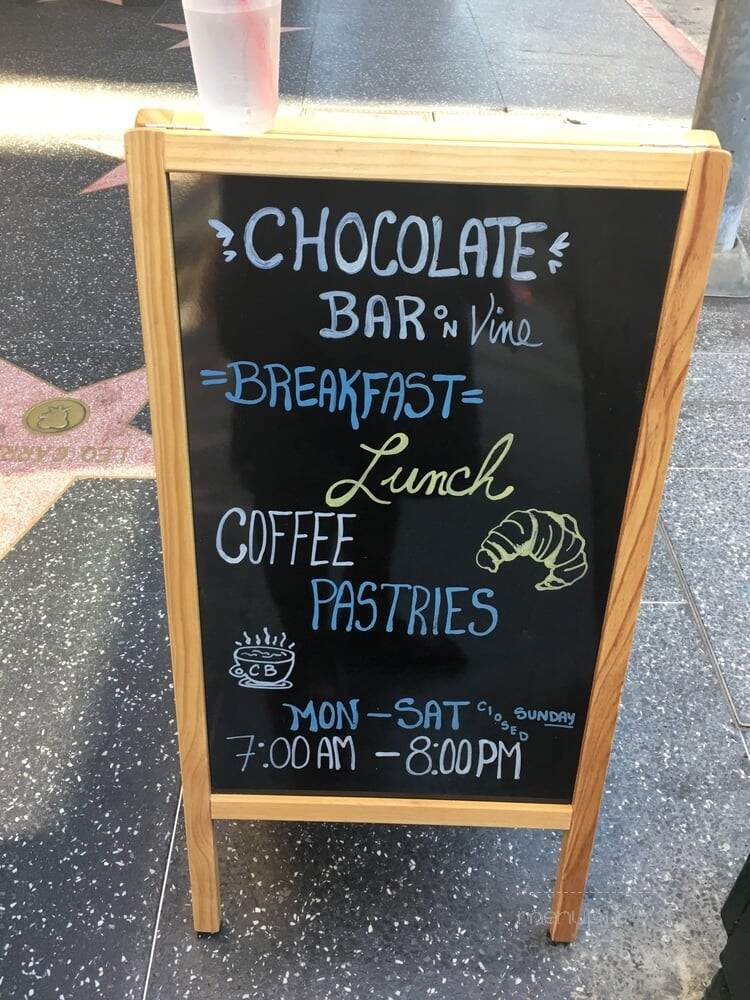 CHOCOLATE
BAR ON Vine
=BREAKFAST=
Lunch
COFFEE
PASTRIES
CB
MON - SAT CLOSED SUNDAY
7:00 AM - 8:00 PM
LEO CARR